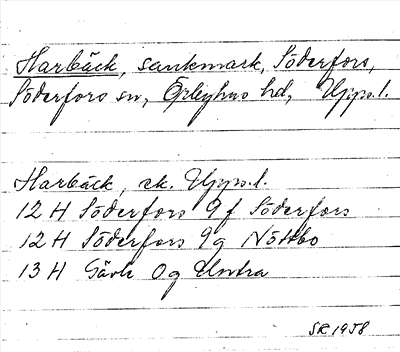 Harbäck, sankmark, Söderfors,
Söderfors sn, Örbyhus hd, Upps.l.
Harbäck, ek. Upps.l.
12 H Söderfors 9f Söderfors
12 H Söderfors 9g Nöttbo
13 H Gävle 0g Untra
SR 1958